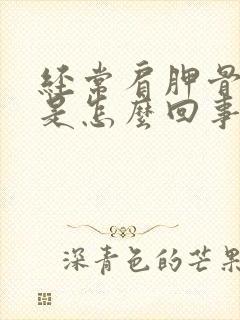 经常肩胛骨
是怎麼回事
深青色的芒果